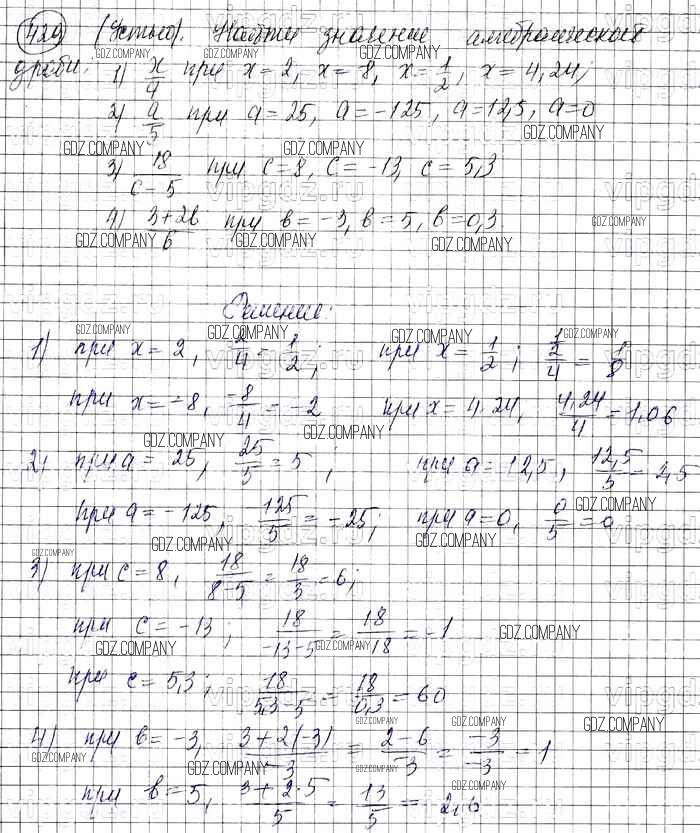 429 (Устно). Найти значение алгебраической
дроби. 1) x/4 при x = 2, x = 8, x = 1/2, x = 4,24;
2) a/5 при a = 25, a = -125, a = 12,5, a = 0
3) 18/(c - 5) при c = 8, c = -13, c = 5,3
4) (3 + 2b)/b при b = -3, b = 5, b = 0,3
Решение:
1) при x = 2, 2/4 = 1/2; при x = 1/2; (1/2)/4 = 1/8
при x = -8, -8/4 = -2 при x = 4.24, 4,24/4 = 1,06
2) при a = 25, 25/5 = 5; при a = 12,5, 12,5/5 = 2,5
при a = -125, -125/5 = -25; при a = 0, 0/5 = 0
3) при c = 8, 18/(8-5) = 18/3 = 6;
при c = -13; 18/(-13-5) = 18/18 = -1
при c = 5,3; 18/(5,3-5) = 18/0,3 = 60
4) при b = -3, (3+2(-3))/-3 = (2-6)/-3 = -3/-3 = 1
при b = 5, (3+2·5)/5 = 13/5 = 2,6
GDZ.COMPANY
vipgdz.ru